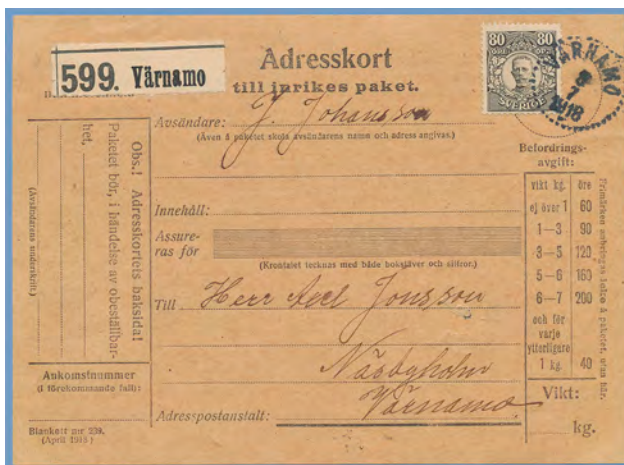 599. Värnamo
Adresskort
till inrikes paket.
80 80
ÖRE ÖRE
SVERIGE
VÄRNAMO
7
1918
Avsändare: J. Johansson
(Även å paketet skola avsändarens namn och adress angivas.)
Innehåll:
Assure-
ras för
(Krontalet tecknas med både bokstäver och siffror.)
Till Herr Axel Jonsson
Näsbyholm
Värnamo
Adresspostanstalt:
Obs.! Adresskortets baksida!
Paketet bör, i händelse av obeställbar-
het,
(Avsändarens underskrift.)
Ankomstnummer
(i förekommande fall):
Blankett nr 239.
(April 1918)
Befordrings-
avgift:
vikt kg. öre
ej över 1 60
1—3 90
3—5 120
5—6 160
6—7 200
och för
varje
ytterligare
1 kg. 40
Frimärken anbringas å paketet, utan här.
Vikt:
kg.